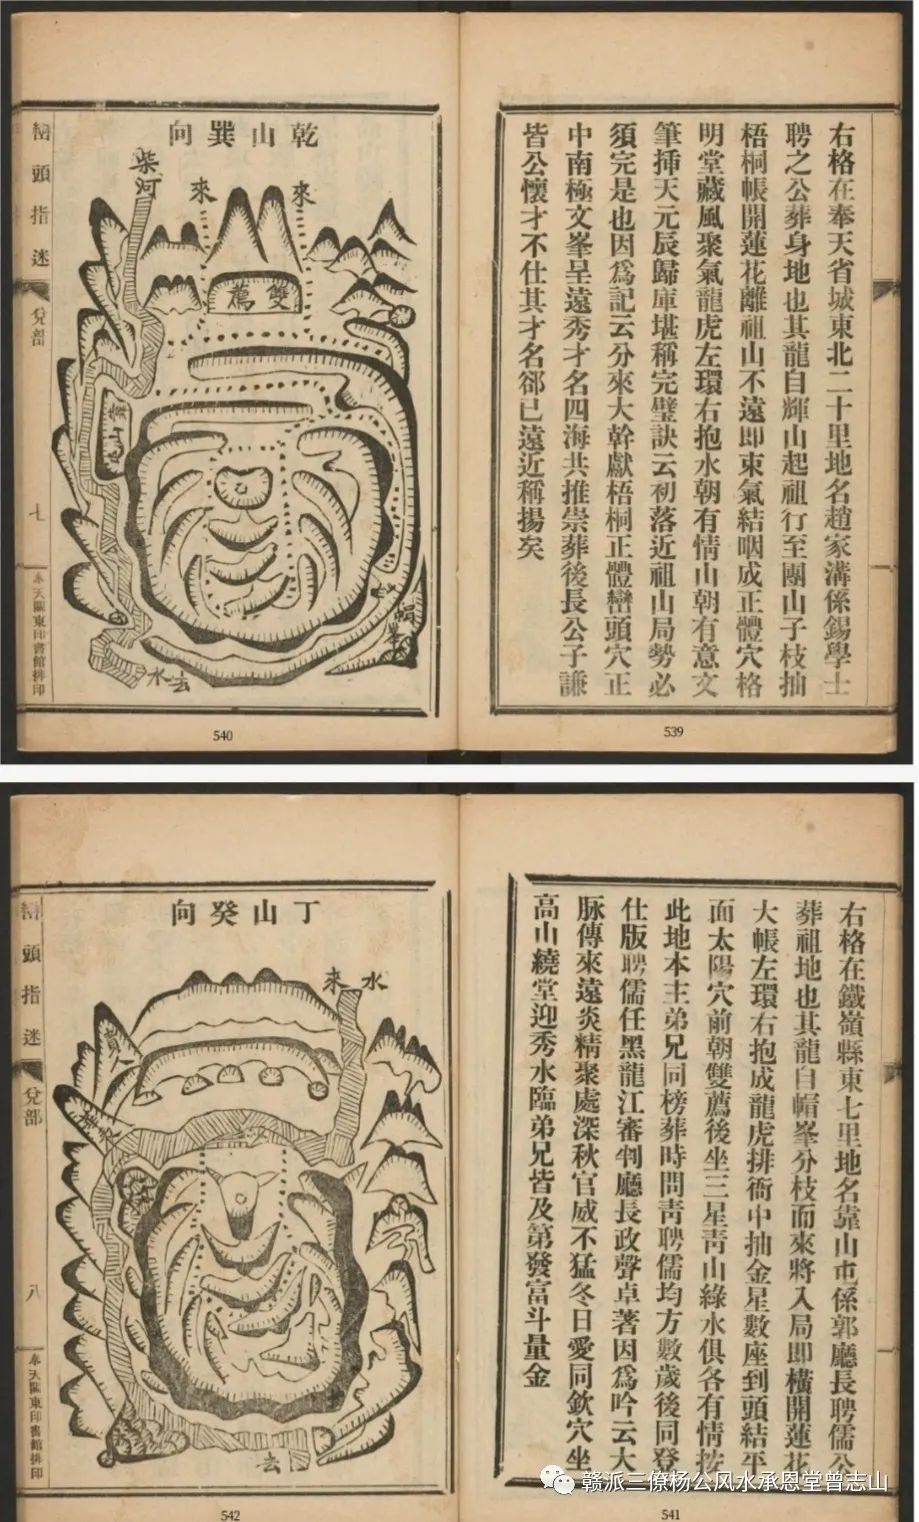 右格在奉天省城東北二十里地名趙家溝係錫學士
聘之公葬身地也其龍自輝山起祖行至團山子枝抽
梧桐帳開蓮花離祖山不遠即束氣結咽成正體穴格
明堂藏風聚氣龍虎左環右抱水朝有情山朝有意文
筆挿天元辰歸庫堪稱完璧訣云初落近祖山局勢必
須完是也因爲記云分來大幹獻梧桐正體巒頭穴正
中南極文峯呈遠秀才名四海共推崇葬後長公子謙
皆公懷才不仕其才名郤已遠近稱揚矣
539
向巽山乾
柴河
來
來
薦雙
去水
巒頭指迷
兌部
七
奉天關東印書館排印
540
右格在鐵嶺縣東七里地名靠山屯係郭廳長聘儒公
葬祖地也其龍自帽峯分枝而來將入局即橫開蓮花
大帳左環右抱成龍虎排衙中抽金星數座到頭結平
面太陽穴前朝雙薦後坐三星靑山綠水俱各有情按
此地本主弟兄同榜葬時問靑聘儒均方數歲後同登
仕版聘儒任黑龍江審判廳長政聲卓著因爲吟云大
脉傳來遠炎精聚處深秋官威不猛冬日愛同欽穴坐
高山繞堂迎秀水臨弟兄皆及第發富斗量金
541
向癸山丁
來水
去
巒頭指迷
兌部
八
奉天關東印書館排印
542
赣派三僚杨公风水承恩堂曾志山